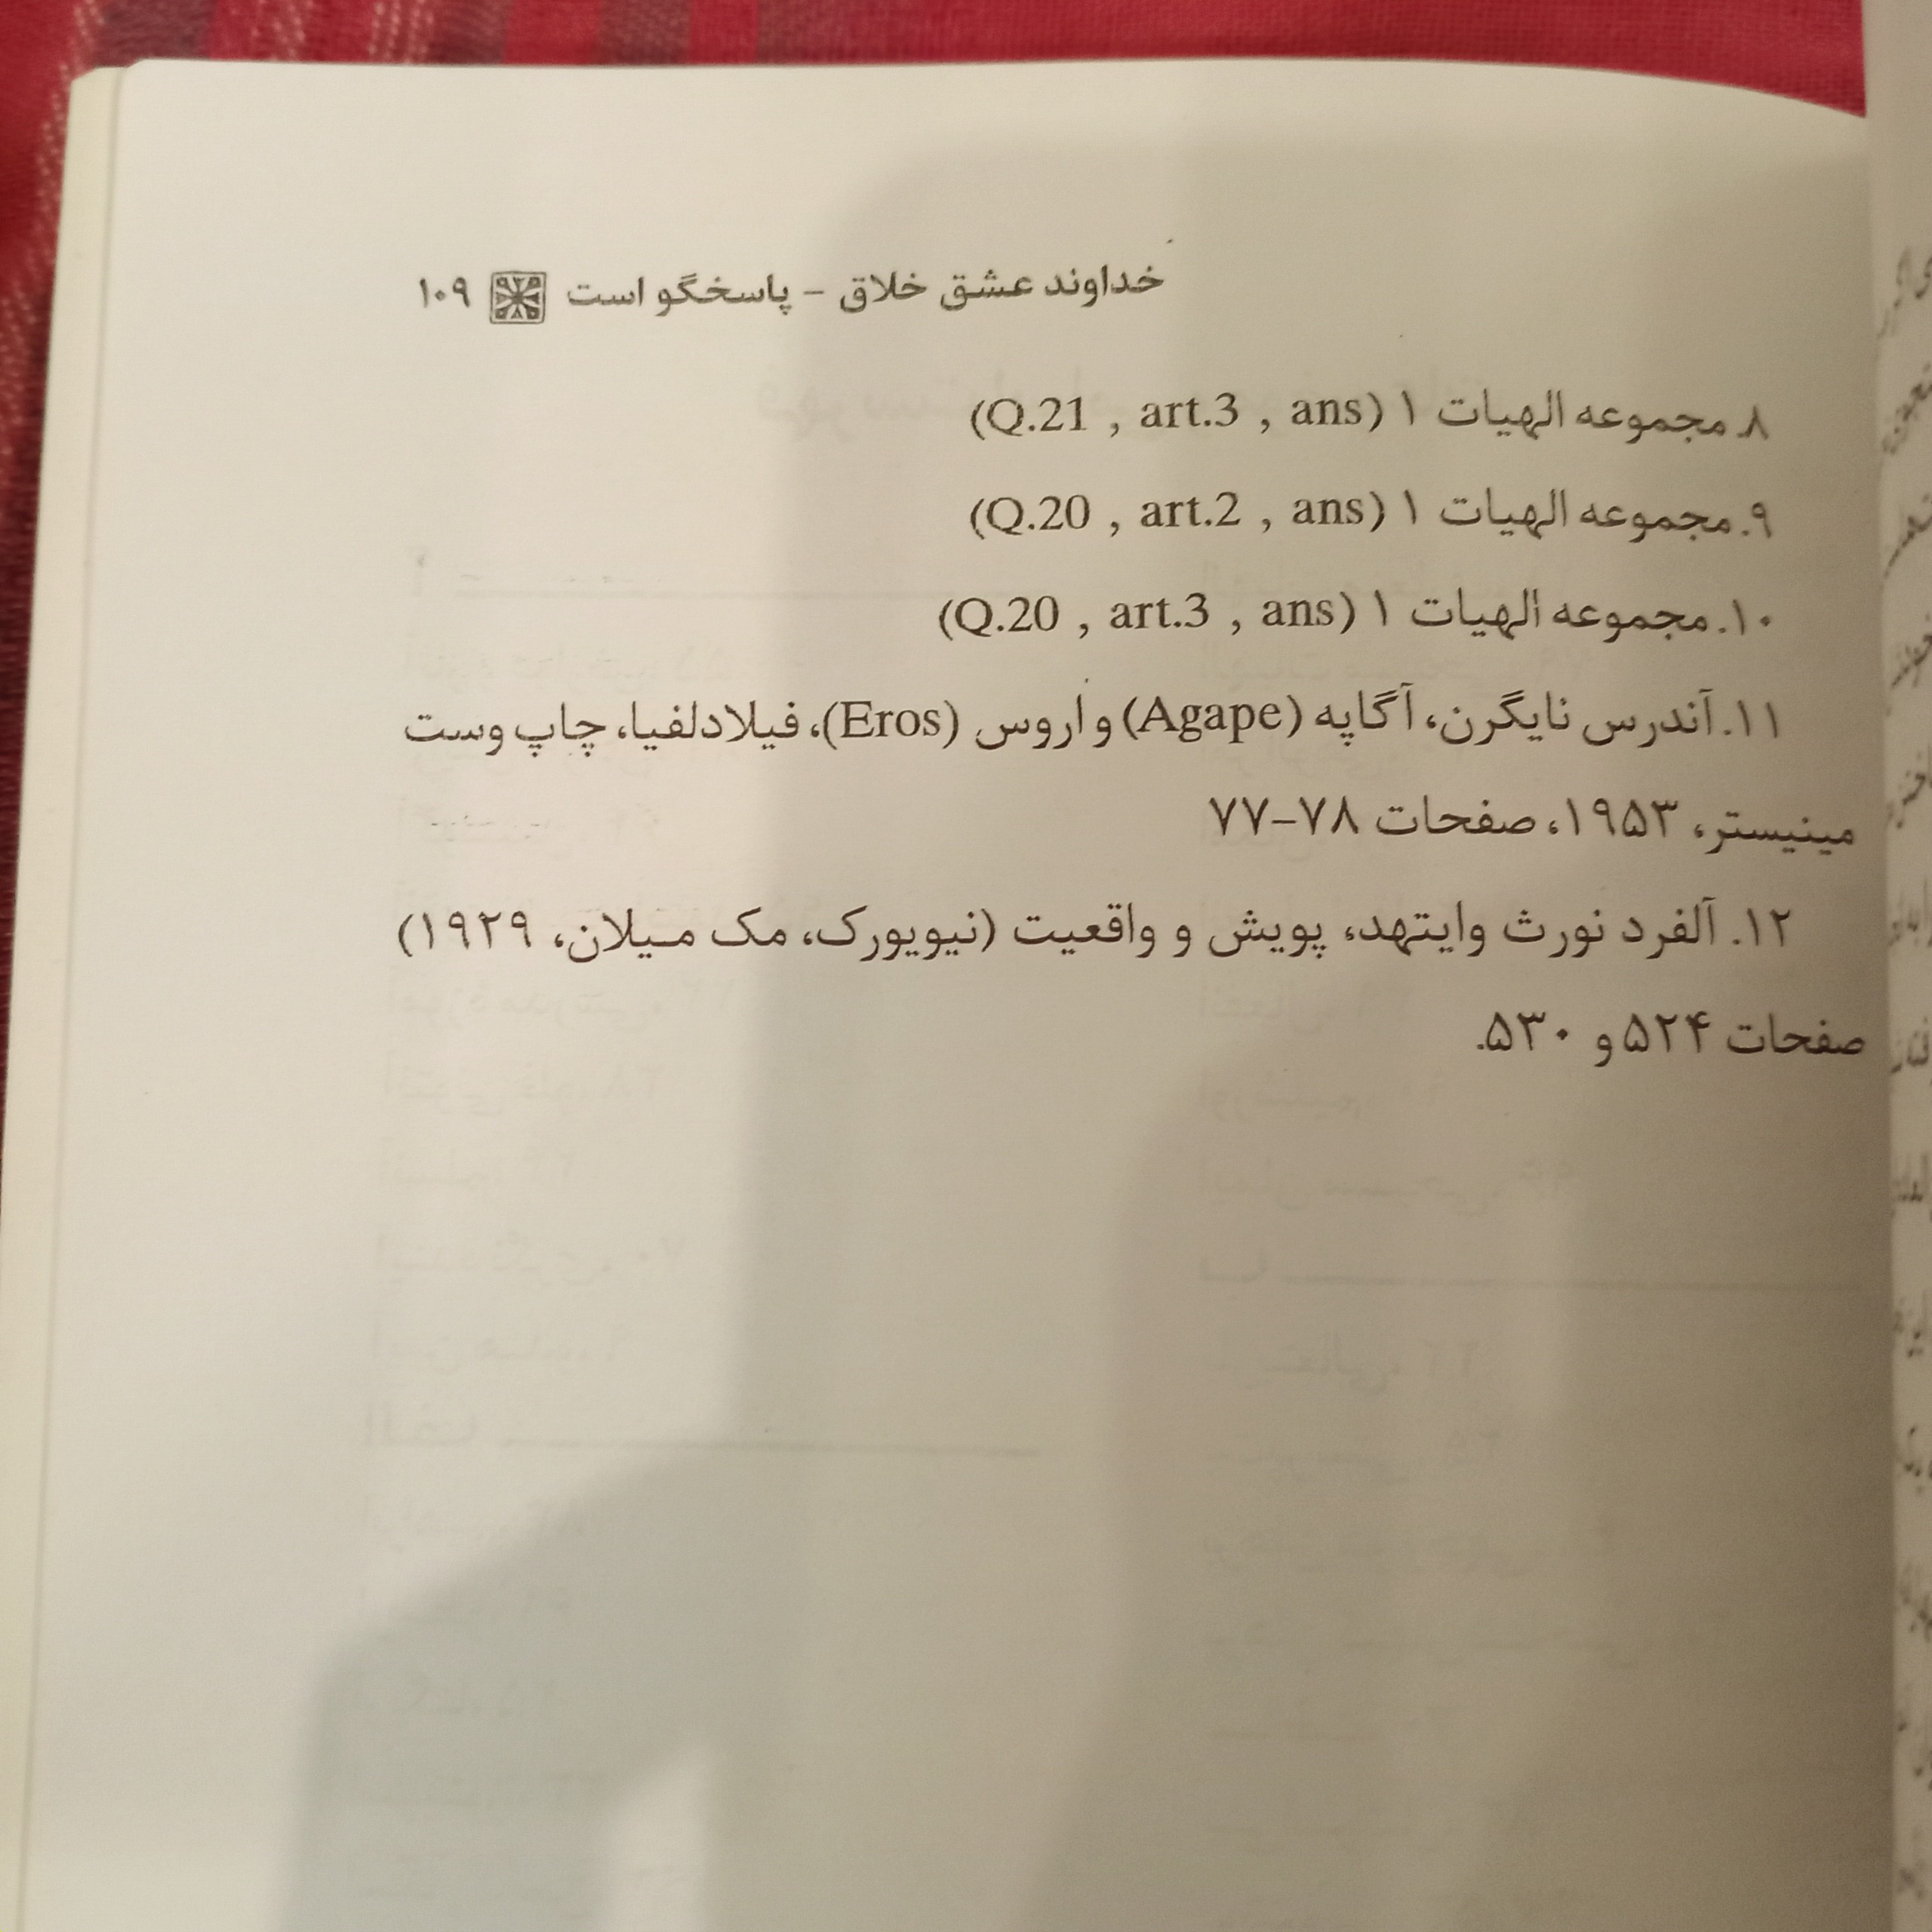 خداوند عشق خلاق – پاسخگو است ۱۰۹
۸. مجموعه الهیات ۱ (Q.21 , art.3 , ans)
۹. مجموعه الهیات ۱ (Q.20 , art.2 , ans)
۱۰. مجموعه الهیات ۱ (Q.20 , art.3 , ans)
۱۱. آندرس نایگرن، آگاپه (Agape) و اروس (Eros)، فیلادلفیا، چاپ وست
مینیستر، ۱۹۵۳، صفحات ۷۸–۷۷
۱۲. آلفرد نورث وایتهد، پویش و واقعیت (نیویورک، مک میلان، ۱۹۲۹)
صفحات ۵۲۴ و ۵۳۰.